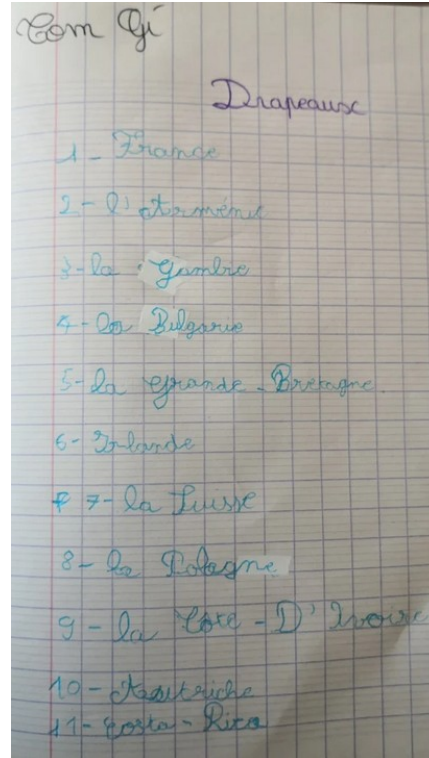 Tom Gi
Drapeaux
1 - France
2 - l'Arménie
3 - la Gambie
4 - la Bulgarie
5 - la Grande - Bretagne
6 - Irlande
7 - la Suisse
8 - la Pologne
9 - la Côte - D'Ivoire
10 - Autriche
11 - Costa - Rica